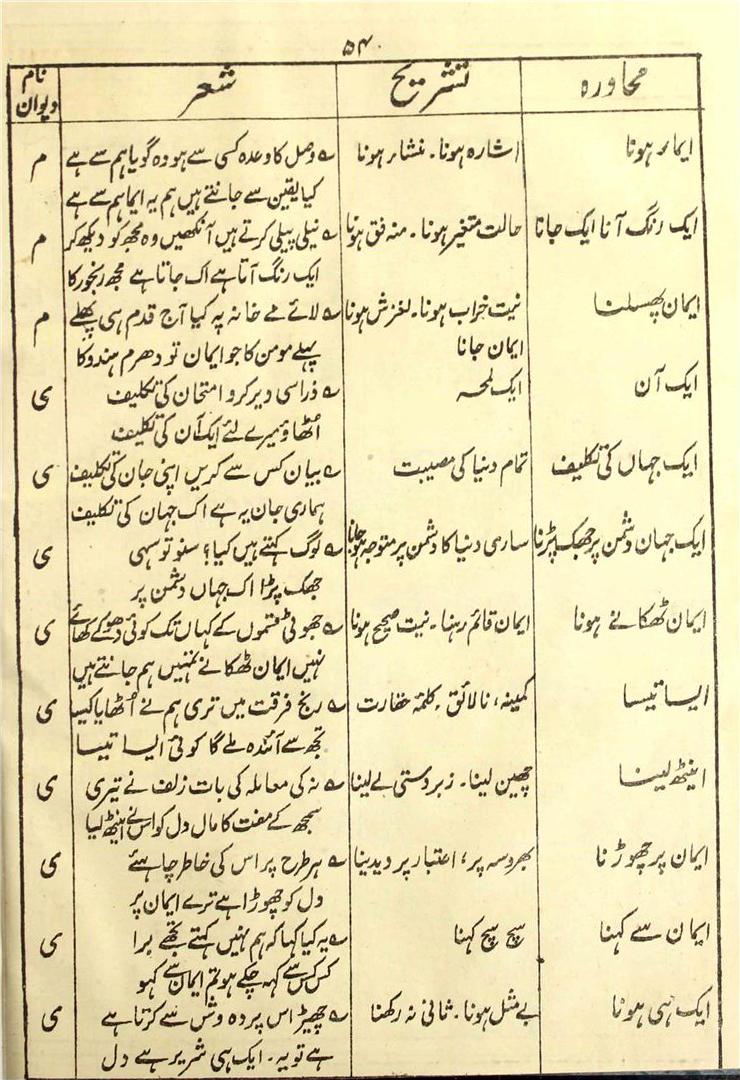 ۵۴
محاورہ تشریح شعر نام دیوان
ایما ہونا اشارہ ہونا۔ منشا ہونا ؎ وصل کا وعدہ کسی سے ہو وہ گویا ہم سے ہے م
کیا یقین سے جانتے ہیں ہم یہ ایما ہم سے ہے
ایک رنگ آنا ایک جانا حالت متغیر ہونا۔ منہ فق ہونا ؎ نیلی پیلی کرتے ہیں آنکھیں وہ مجھ کو دیکھ کر م
ایک رنگ آتا ہے اک جاتا ہے مجھ رنجور کا
ایمان پھسلنا نیت خراب ہونا۔ لغزش ہونا ؎ لائے مے خانہ پہ کیا آج قدم ہی پھسلے م
ایمان جانا پہلے مومن کا جو ایمان تو دھرم ہندو کا
ایک آن ایک لمحہ ؎ ذرا سی دیر کرو امتحان کی تکلیف ی
اُٹھاؤ میرے لئے ایک آن کی تکلیف
ایک جہاں کی تکلیف تمام دنیا کی مصیبت ؎ بیان کس سے کریں اپنی جان کی تکلیف ی
ہماری جان یہ ہے اک جہان کی تکلیف
ایک جہان دشمن پر جھک پڑنا ساری دنیا کا دشمن پر متوجہ ہو جانا ؎ لوگ کہتے ہیں کیا؟ سنو تو سہی ی
جھک پڑا اک جہاں دشمن پر
ایمان ٹھکانے ہونا ایمان قائم رہنا۔ نیت صحیح ہونا ؎ جھوٹی قسموں کے کہاں تک کوئی دھوکے کھائے ی
نہیں ایمان ٹھکانے تمہیں ہم جانتے ہیں
ایسا تیسا کمینہ، نالائق، کلمۂ حقارت ؎ رنج فرقت میں تری ہم نے اُٹھایا کیسا ی
تجھ سے آئندہ ملے گا کوئی ایسا تیسا
اینٹھ لینا چھین لینا۔ زبردستی لے لینا ؎ نہ کی معاملہ کی بات زلف نے تیری ی
سمجھ کے مفت کا مال دل کو اس نے اینٹھ لیا
ایمان پر چھوڑنا بھروسہ پر، اعتبار پر دیدینا ؎ ہر طرح پر اس کی خاطر چاہئے ی
دل کو چھوڑا ہے ترے ایمان پر
ایمان سے کہنا سچ سچ کہنا ؎ یہ کیا کہا کہ ہم نہیں کہتے تجھے برا ی
کس کس سے کہہ چکے ہو تم ایمان سے کہو
ایک ہی ہونا بے مثل ہونا۔ ثانی نہ رکھنا ؎ چھیڑ اس پردہ وش سے کرتا ہے ی
ہے تو یہ۔ ایک ہی شریر ہے دل